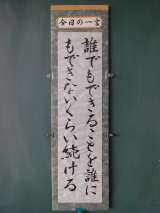 今日の一言
誰でもできることを誰に
もできないくらい続ける